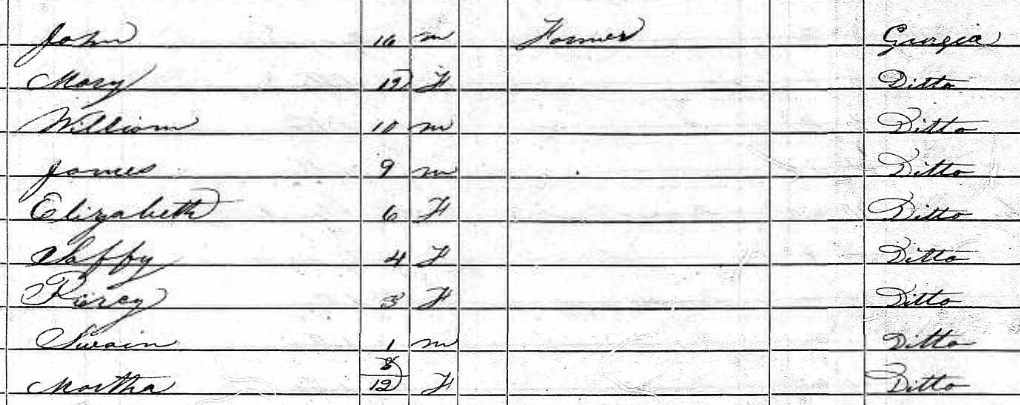 John 16 m Farmer Georgia
Mary 12 F Ditto
William 10 m Ditto
James 9 m Ditto
Elizabeth 6 F Ditto
Saffy 4 F Ditto
Percy 3 F Ditto
Swain 1 m Ditto
Martha 8/12 F Ditto